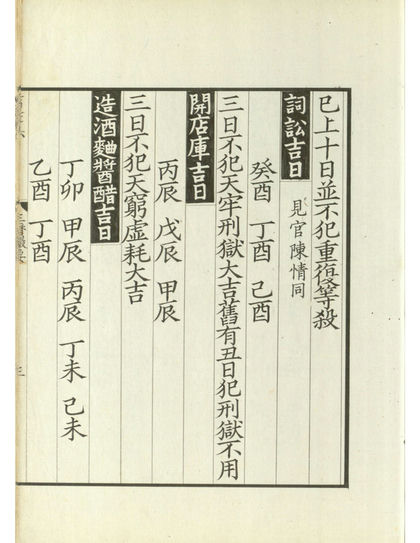 巳上十日並不犯重復等殺
詞訟吉日 見官陳情同
癸酉 丁酉 己酉
三日不犯天牢刑獄大吉舊有丑日犯刑獄不用
開店庫吉日
丙辰 戊辰 甲辰
三日不犯天窮虛耗大吉
造酒麯醬醋吉日
丁卯 甲辰 丙辰 丁未 己未
乙酉 丁酉
三